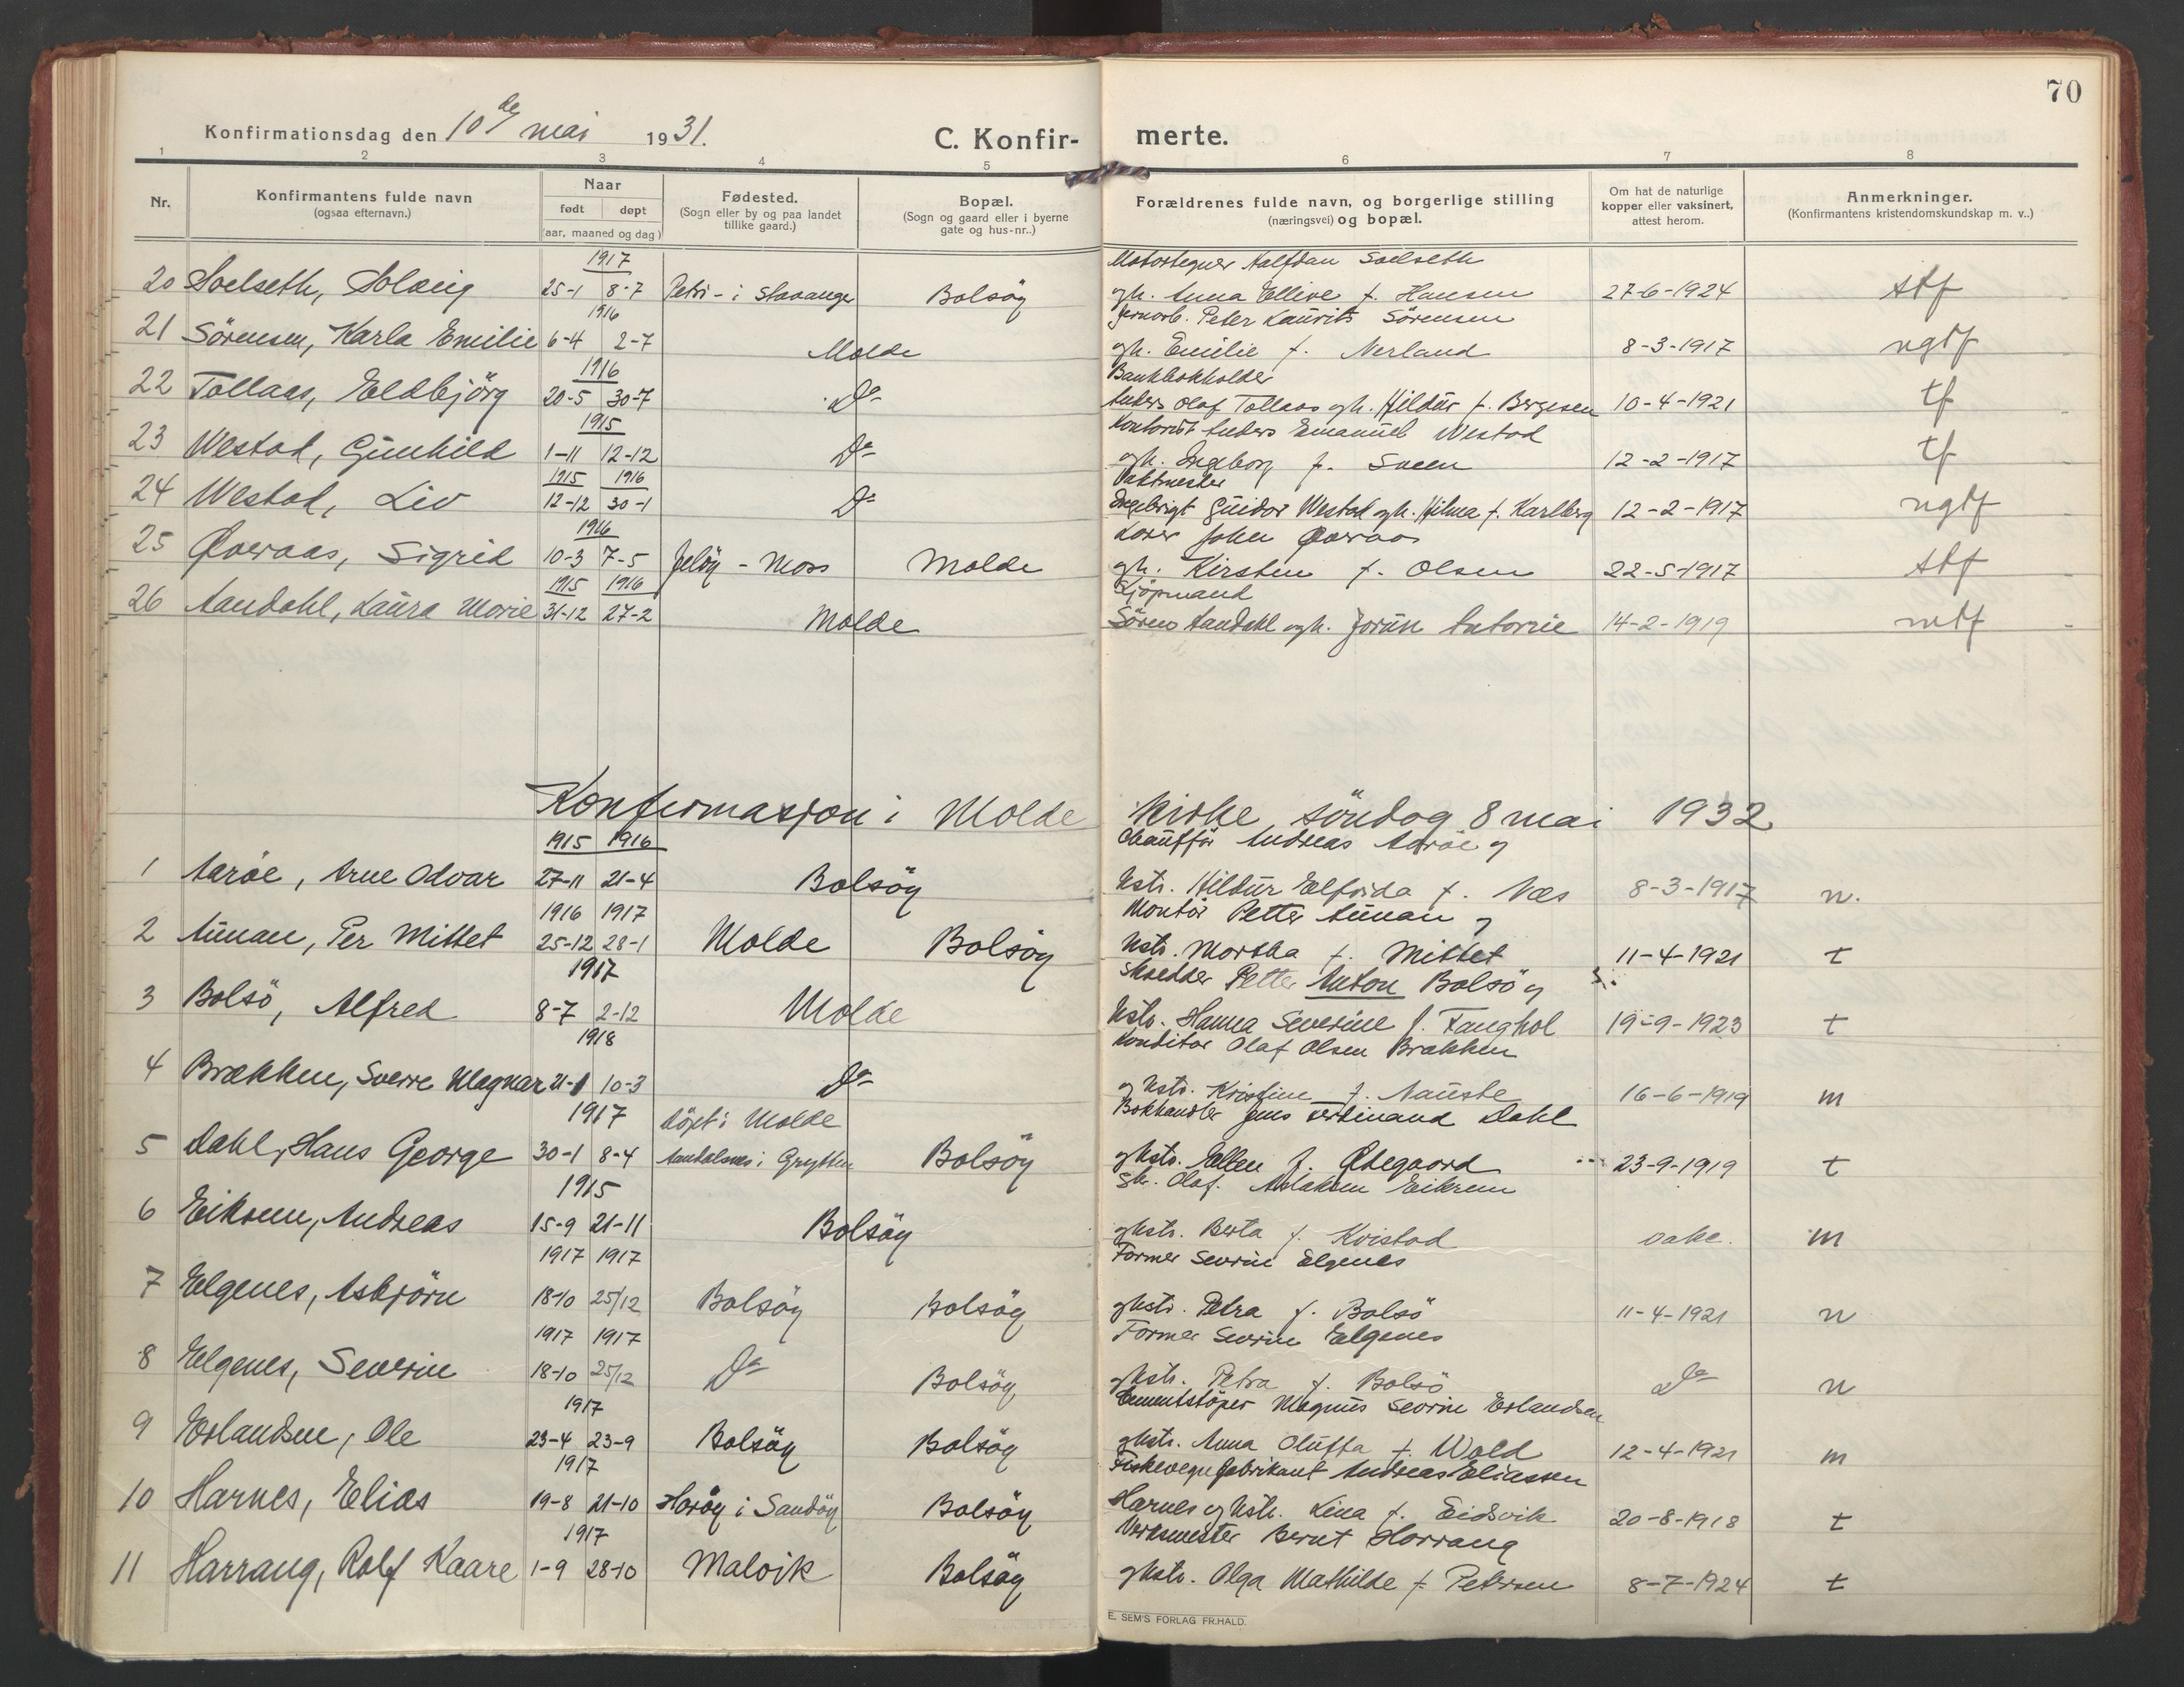 70
Konfirmationsdag den 10de mai 1931.
C. Konfir-merte.
1 2 3 4 5 6 7 8
Nr.
Konfirmantens fulde navn
(ogsaa efternavn.)
Naar
født døpt
(aar, maaned og dag)
Fødested.
(Sogn eller by og paa landet
tillike gaard.)
Bopæl.
(Sogn og gaard eller i byerne
gate og hus-nr..)
Forældrenes fulde navn, og borgerlige stilling
(næringsvei) og bopæl.
Om hat de naturlige
kopper eller vaksinert,
attest herom.
Anmerkninger.
(Konfirmantens kristendomskundskap m. v..)
1917 Halfdan Soelseth
20 Soelseth, Solveig 25-1 8-7 Petri - i Stavanger Bolsöy gh. Anna Elline f. Hansen 27-6-1924 stf
1916 Peter Laurits Sörensen
21 Sörensen, Karla Emilie 6-4 2-7 Molde gh. Emilie f. Nerland 8-3-1917 ngtf
1916 Bankbokholder
22 Tollaas, Eldbjörg 20-5 30-7 Do Anders Olaf Tollaas gh. Hildur f. Bergesen 10-4-1921 tf
1915 Kontorist Anders Emanuel Westad
23 Westad, Gunhild 1-11 12-12 Do gh. Ingeborg f. Sveen 12-2-1917 tf
1915 1916 Vaktmester
24 Westad, Liv 12-12 30-1 Do Ingebrigt Guidor Westad gh. Hilma f. Karlberg 12-2-1917 ngtf
1916 Lærer John Øveraas
25 Øveraas, Sigrid 10-3 7-5 Jelöy - Moss Molde gh. Kirsten f. Olsen 22-5-1917 stf
1915 1916 Kjöpmand
26 Aandahl, Laura Marie 31-12 27-2 Molde Sören Aandahl gh. Jorun Antonie 14-2-1919 mtf
Konfirmasjon i Molde Kirke söndag 8 mai 1932
1915 1916 Chaufför Andreas Aaröe og
1 Aaröe, Arne Odvar 27-11 21-4 Bolsöy Hstr. Hildur Elfrida f. Næs 8-3-1917 n.
1916 1917 Montör Petter Aunan og
2 Aunan, Per Mittet 25-12 28-1 Molde Bolsöy Hstr. Martha f. Mittet 11-4-1921 t
1917 Skredder Petter Anton Bolsö og
3 Bolsö, Alfred 8-7 2-12 Molde Hstr. Hanna Severine f. Fanghol 19-9-1923 t
1918 Konditor Olaf Olsen Brækken
4 Brækken, Sverre Magnar 21-1 10-3 Do og Hstr. Kristine f. Nauste 16-6-1919 m
1917 döpt i Molde Bokhandler Jens Ferdinand Dahl
5 Dahl, Hans George 30-1 8-4 Aandalsnes i Grytten Bolsöy og Hstr. Ellen f. Ødegaard 23-9-1919 t
1915 Olaf Aslaksen Eikrem
6 Eikrem, Andreas 15-9 21-11 Bolsöy og Hstr. Berta f. Kvistad vakc. m
1917 1917 Former Severin Elgenes
7 Elgenes, Asbjörn 18-10 25/12 Bolsöy Bolsöy og Hstr. Petra f. Bolsö 11-4-1921 n
1917 1917 Former Severin Elgenes
8 Elgenes, Severin 18-10 25/12 Do Bolsöy og Hstr. Petra f. Bolsö Do n
1917 Cementstöper Magnus Severin Erlandsen
9 Erlandsen, Ole 23-4 23-9 Bolsöy Bolsöy og Hstr. Anna Oluffa f. Wold 12-4-1921 m
1917 Andreas Eliassen
10 Harnes, Elias 19-8 21-10 Haröy i Sandöy Bolsöy Harnes og Hstr. Lina f. Eidsvik 20-8-1918 t
1917 Verksmester Bernt Harrang
11 Harrang, Rolf Kaare 1-9 28-10 Malvik Bolsöy og Hstr. Olga Mathilde f. Petersen 8-7-1924 t
E. SEM'S FORLAG FR.HALD.